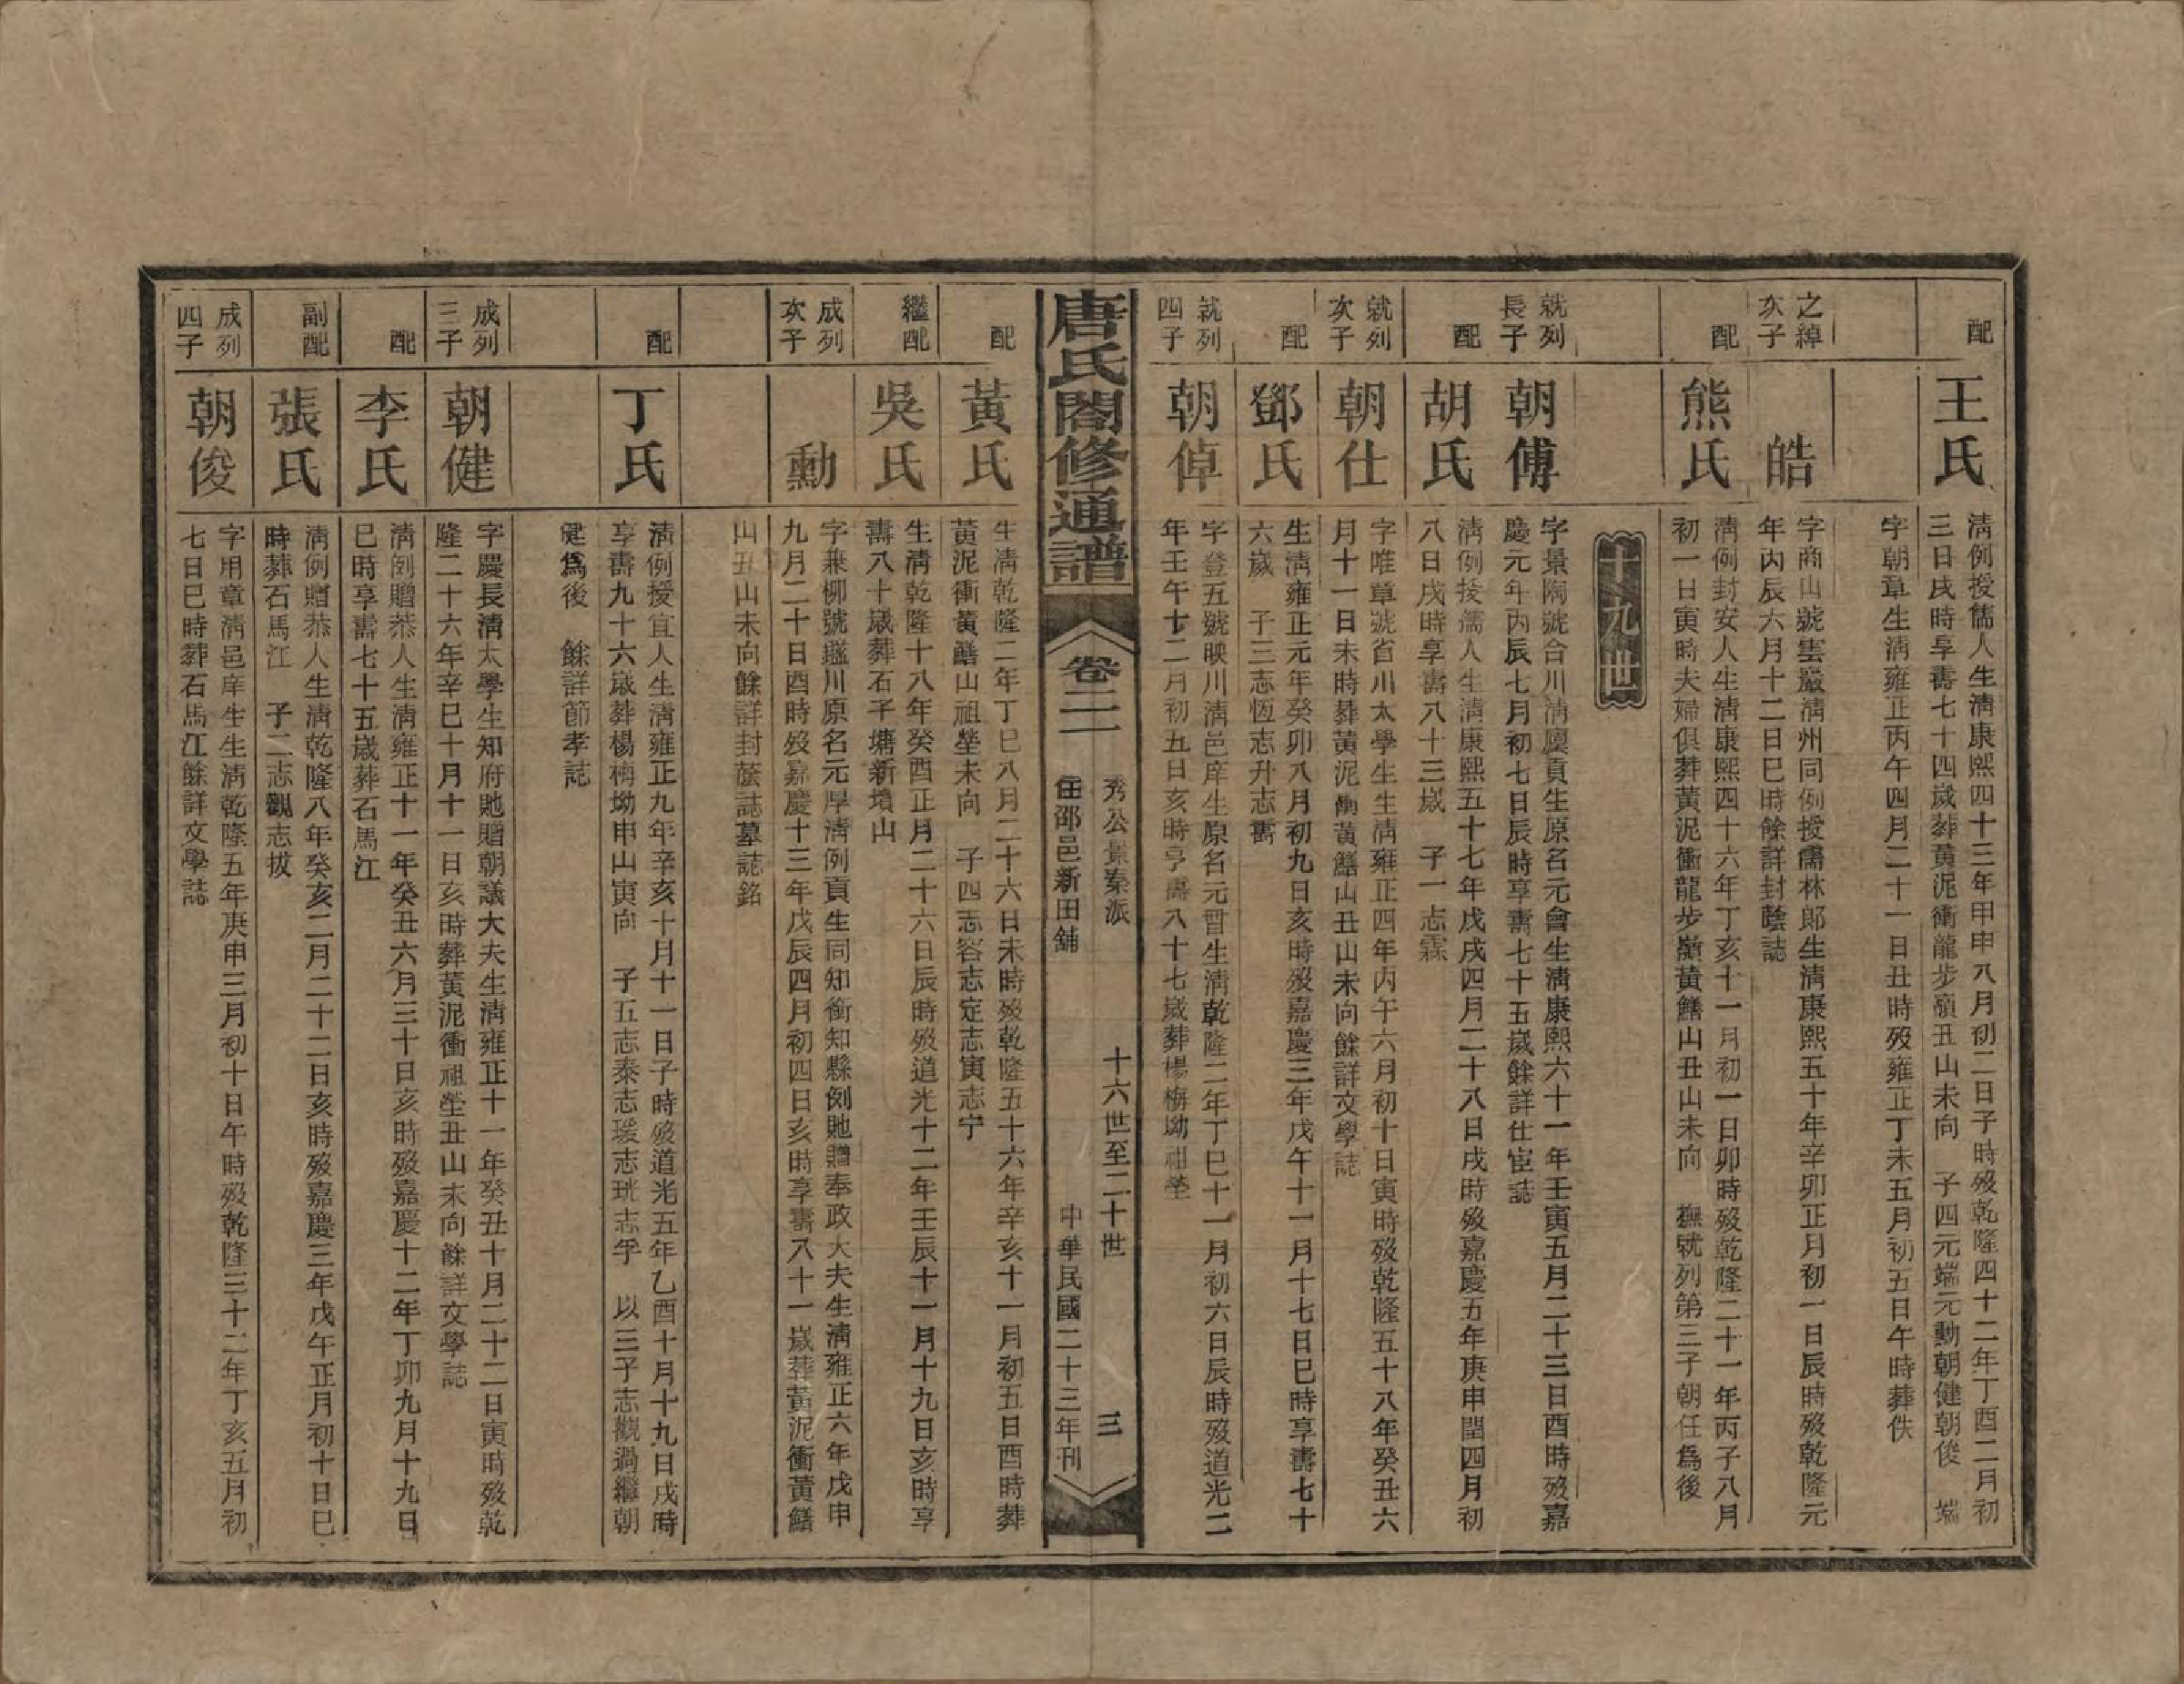 配
王氏
清例授儒人生清康熙四十三年甲申八月初二日子時歿乾隆四十二年丁酉二月初
三日戌時享壽七十四歲葬黃泥衝龍步嶺丑山未向　子四元端元勳朝健朝俊　端
字朝章生清雍正丙午四月二十一日丑時歿雍正丁未五月初五日午時葬佚
之綽
次子
皓
字商山號雲巖清州同例授儒林郎生清康熙五十年辛卯正月初一日辰時歿乾隆元
年丙辰六月十二日巳時餘詳封蔭誌
配
熊氏
清例封安人生清康熙四十六年丁亥十一月初一日卯時歿乾隆二十一年丙子八月
初一日寅時夫婦俱葬黃泥衝龍步嶺黃鱔山丑山未向　撫就列第三子朝任爲後
十九世
就列
長子
朝傅
字景陶號合川清廩貢生原名元會生清康熙六十一年壬寅五月二十三日酉時歿嘉
慶元年丙辰七月初七日辰時享壽七十五歲餘詳仕宦誌
配
胡氏
清例授孺人生清康熙五十七年戊戌四月二十八日戌時歿嘉慶五年庚申閏四月初
八日戌時享壽八十三歲　子一志霖
就列
次子
朝仕
字唯章號省川太學生生清雍正四年丙午六月初十日寅時歿乾隆五十八年癸丑六
月十一日未時葬黃泥衝黃鱔山丑山未向餘詳文學誌
配
鄧氏
生清雍正元年癸卯八月初九日亥時歿嘉慶三年戊午十一月十七日巳時享壽七十
六歲　子三志恆志升志壽
就列
四子
朝倬
字登五號映川清邑庠生原名元晋生清乾隆二年丁巳十一月初六日辰時歿道光二
年壬午十二月初五日亥時享壽八十七歲葬楊梅坳祖塋
唐氏閤修通譜
卷二二
秀公景秦派
住邵邑新田舖
十六世至二十世
三
中華民國二十三年刊
配
黃氏
生清乾隆二年丁巳八月二十六日未時歿乾隆五十六年辛亥十一月初五日酉時葬
黃泥衝黃鱔山祖塋未向　子四志容志定志寅志宁
繼配
吳氏
生清乾隆十八年癸酉正月二十六日辰時歿道光十二年壬辰十一月十九日亥時享
壽八十歲葬石子塘新墳山
成列
次子
勳
字兼柳號蘊川原名元厚清例貢生同知銜知縣例貤贈奉政大夫生清雍正六年戊申
九月二十日酉時歿嘉慶十三年戊辰四月初四日亥時享壽八十一歲葬黃泥衝黃鱔
山丑山未向餘詳封蔭誌墓誌銘
配
丁氏
清例授宜人生清雍正九年辛亥十月十一日子時歿道光五年乙酉十月十九日戌時
享壽九十六歲葬楊梅坳申山寅向　子五志泰志瑗志珖志孚　以三子志觀過繼朝
健爲後　餘詳節孝誌
成列
三子
朝健
字慶長清太學生知府貤贈朝議大夫生清雍正十一年癸丑十月二十二日寅時歿乾
隆二十六年辛巳十月十一日亥時葬黃泥衝祖塋丑山未向餘詳文學誌
配
李氏
清例贈恭人生清雍正十一年癸丑六月三十日亥時歿嘉慶十二年丁卯九月十九日
巳時享壽七十五歲葬石馬江
副配
張氏
清例贈恭人生清乾隆八年癸亥二月二十二日亥時歿嘉慶三年戊午正月初十日巳
時葬石馬江　子二志觀志拔
成列
四子
朝俊
字用章清邑庠生生清乾隆五年庚申三月初十日午時歿乾隆三十二年丁亥五月初
七日巳時葬石馬江餘詳文學誌